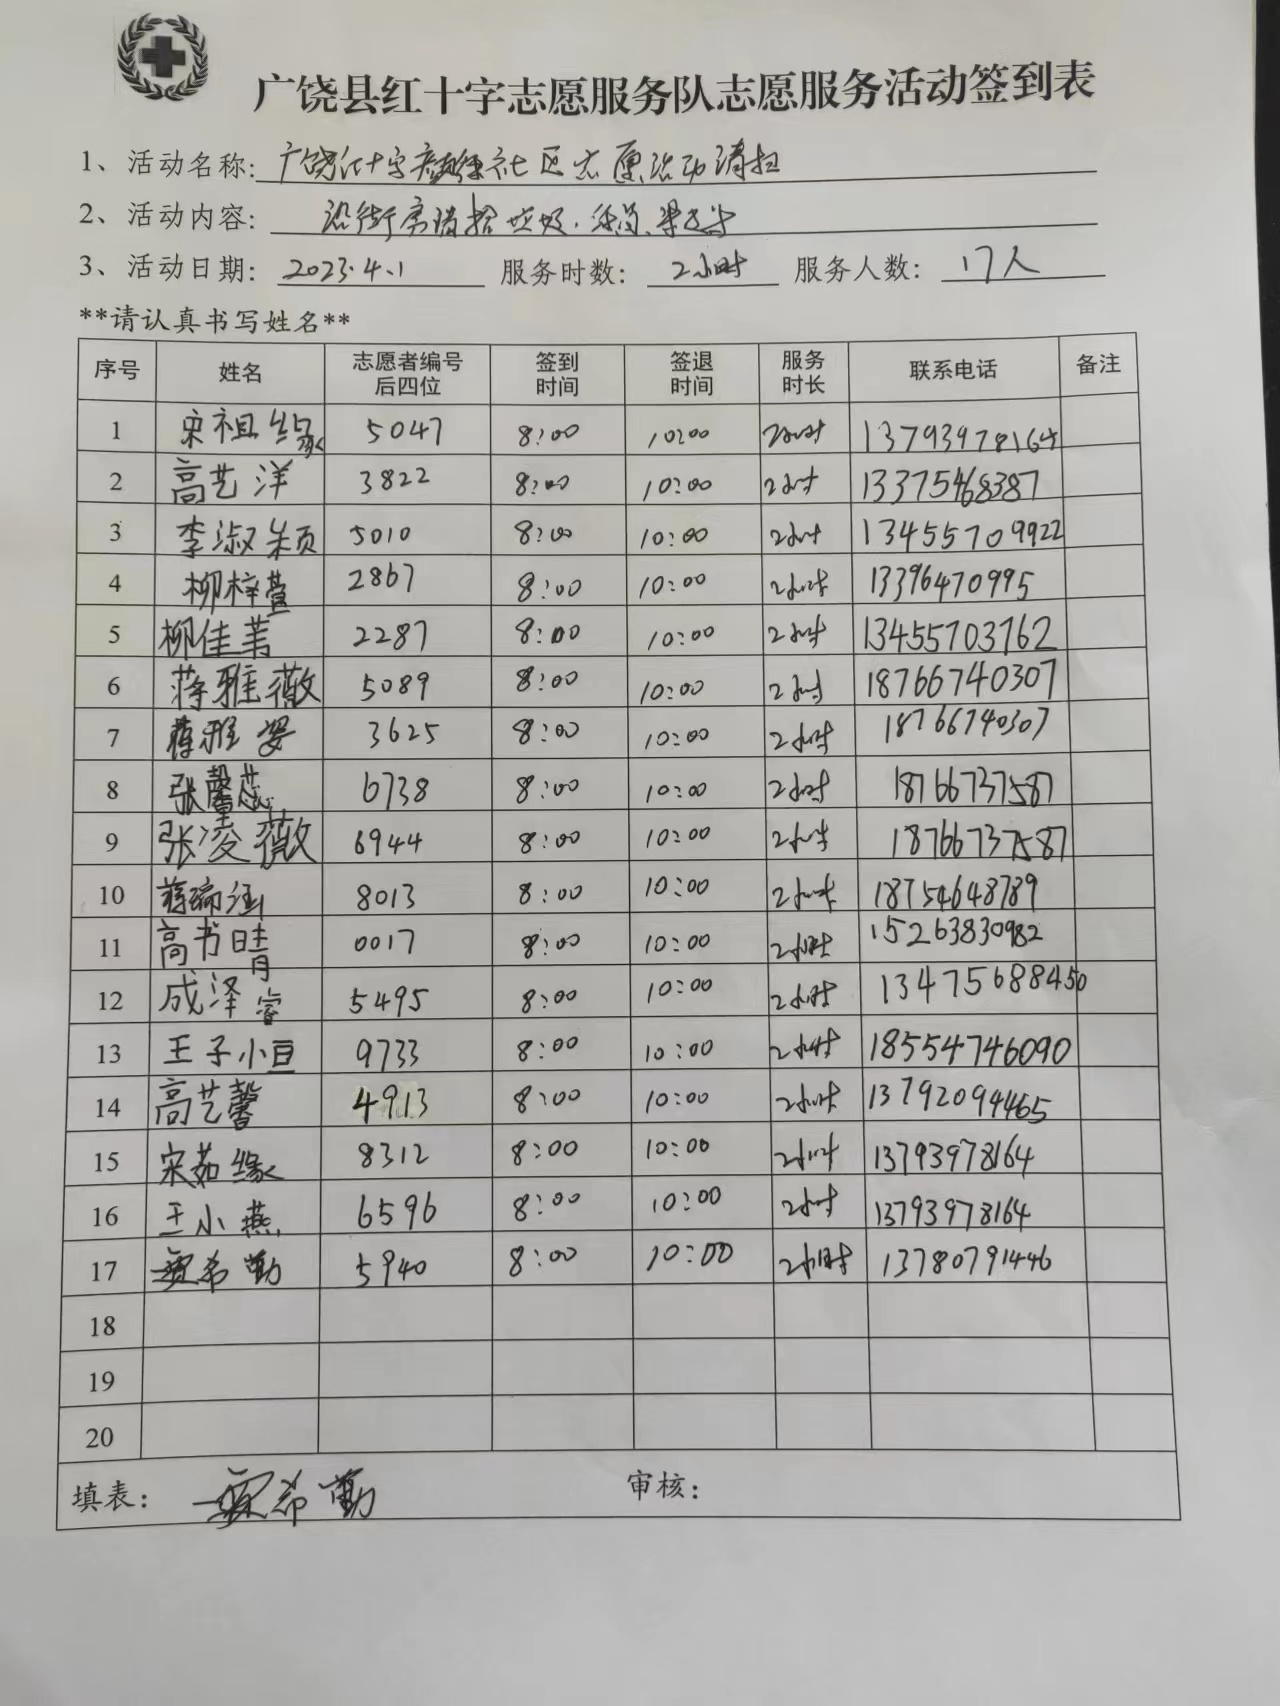 广饶县红十字志愿服务队志愿服务活动签到表
1、活动名称: 广饶红十字 社区志愿活动清扫
2、活动内容: 沿街房清捡垃圾
3、活动日期: 2023.4.1 服务时数: 2小时 服务人数: 17人
**请认真书写姓名**
序号 姓名 志愿者编号后四位 签到时间 签退时间 服务时长 联系电话 备注
1 宋祖缘 5047 8:00 10:00 2小时 13793978164
2 高艺洋 3822 8:00 10:00 2小时 13375468387
3 李淑颖 5010 8:00 10:00 2小时 13455709922
4 柳梓萱 2867 8:00 10:00 2小时 13396470995
5 柳佳苇 2287 8:00 10:00 2小时 13455703762
6 蒋雅薇 5089 8:00 10:00 2小时 18766740307
7 蒋雅姿 3625 8:00 10:00 2小时 18766740307
8 张馨蕊 6738 8:00 10:00 2小时 18766737587
9 张凌薇 6944 8:00 10:00 2小时 18766737587
10 蒋瑞涵 8013 8:00 10:00 2小时 18754648789
11 高书晴 0017 8:00 10:00 2小时 15263830982
12 成泽睿 5495 8:00 10:00 2小时 13475688450
13 王子小亘 9733 8:00 10:00 2小时 18554746090
14 高艺馨 4913 8:00 10:00 2小时 13792094465
15 宋茹缘 8312 8:00 10:00 2小时 13793978164
16 王小燕 6596 8:00 10:00 2小时 13793978164
17 希勤 5940 8:00 10:00 2小时 13780791446
18
19
20
填表: 希勤 审核: